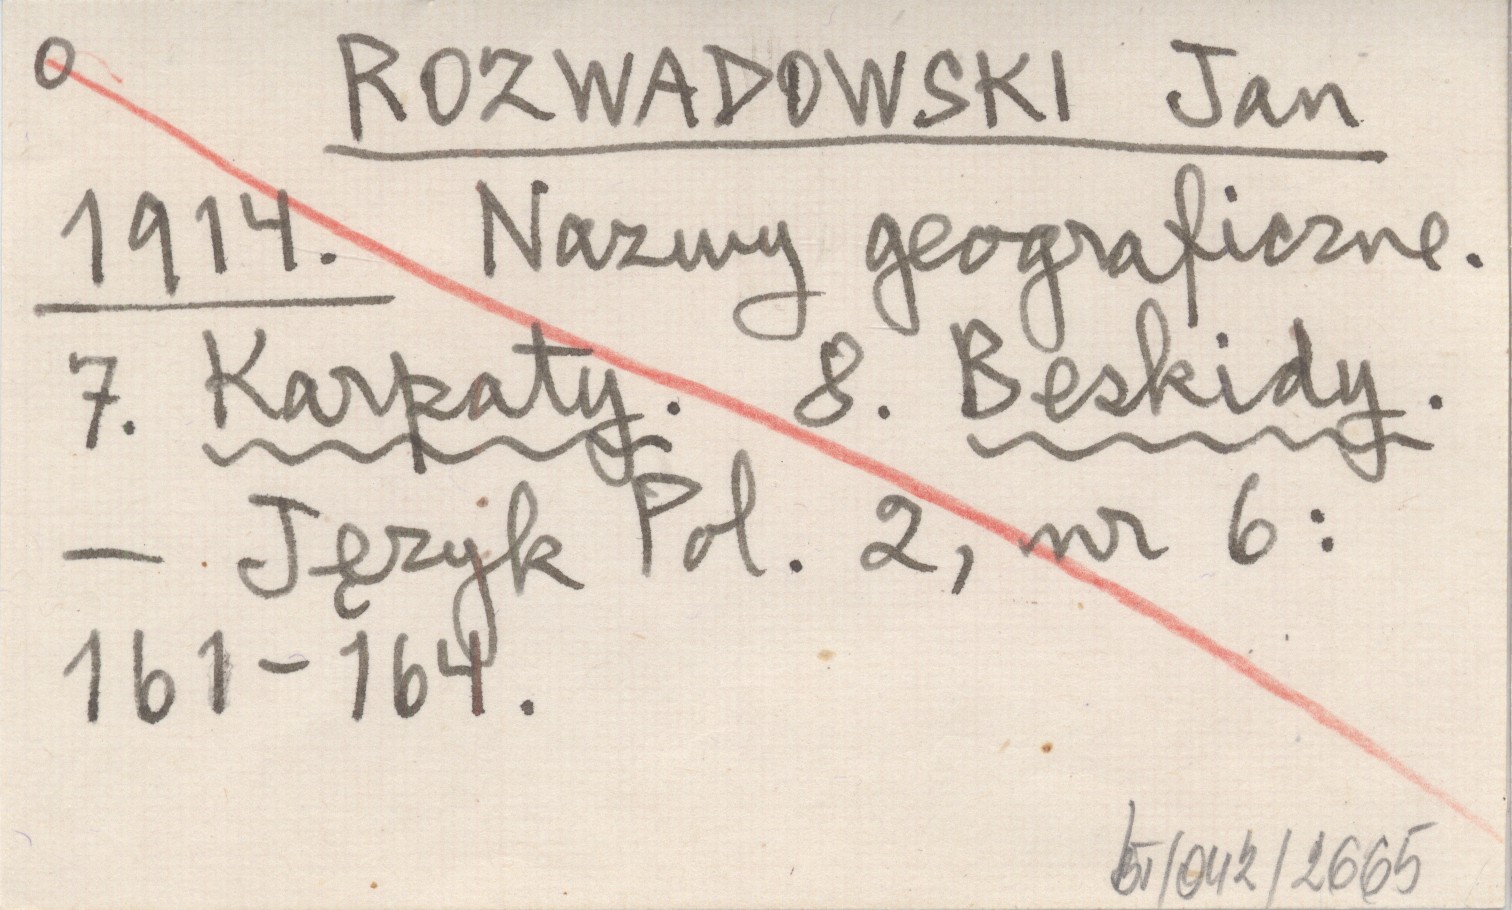 O ROZWADOWSKI Jan
1914. Nazwy geograficzne.
7. Karpaty. 8. Beskidy.
— Język Pol. 2, nr 6:
161-164.
/042/2665